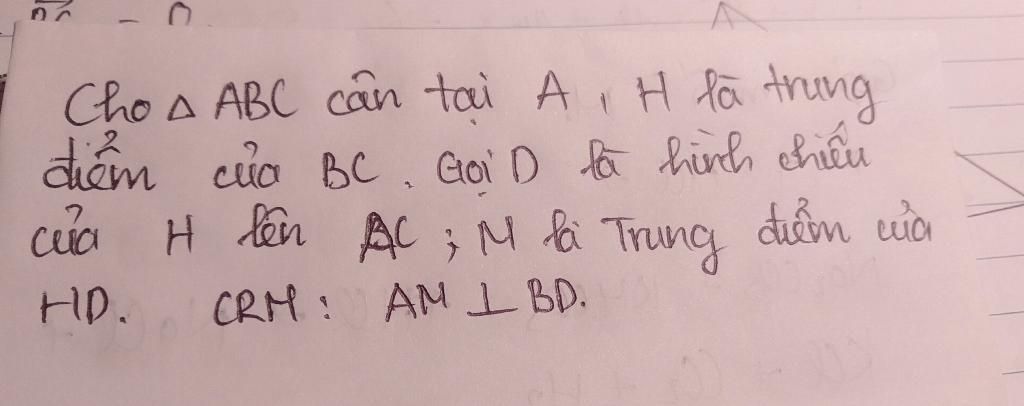 Cho △ ABC cân tại A, H là trung
điểm của BC. Gọi D là hình chiếu
của H lên AC; M là Trung điểm của
HD. CRM: AM ⊥ BD.